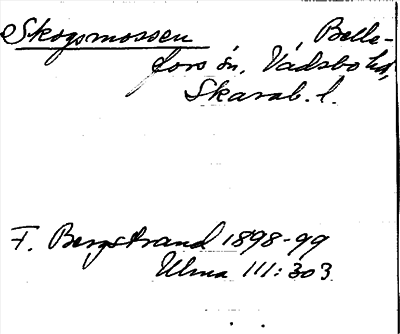 Skogsmossen Belle-
fors sn, Vadsbo hd,
Skarab. l.
F. Bergstrand 1898-99
Ulma 111:303